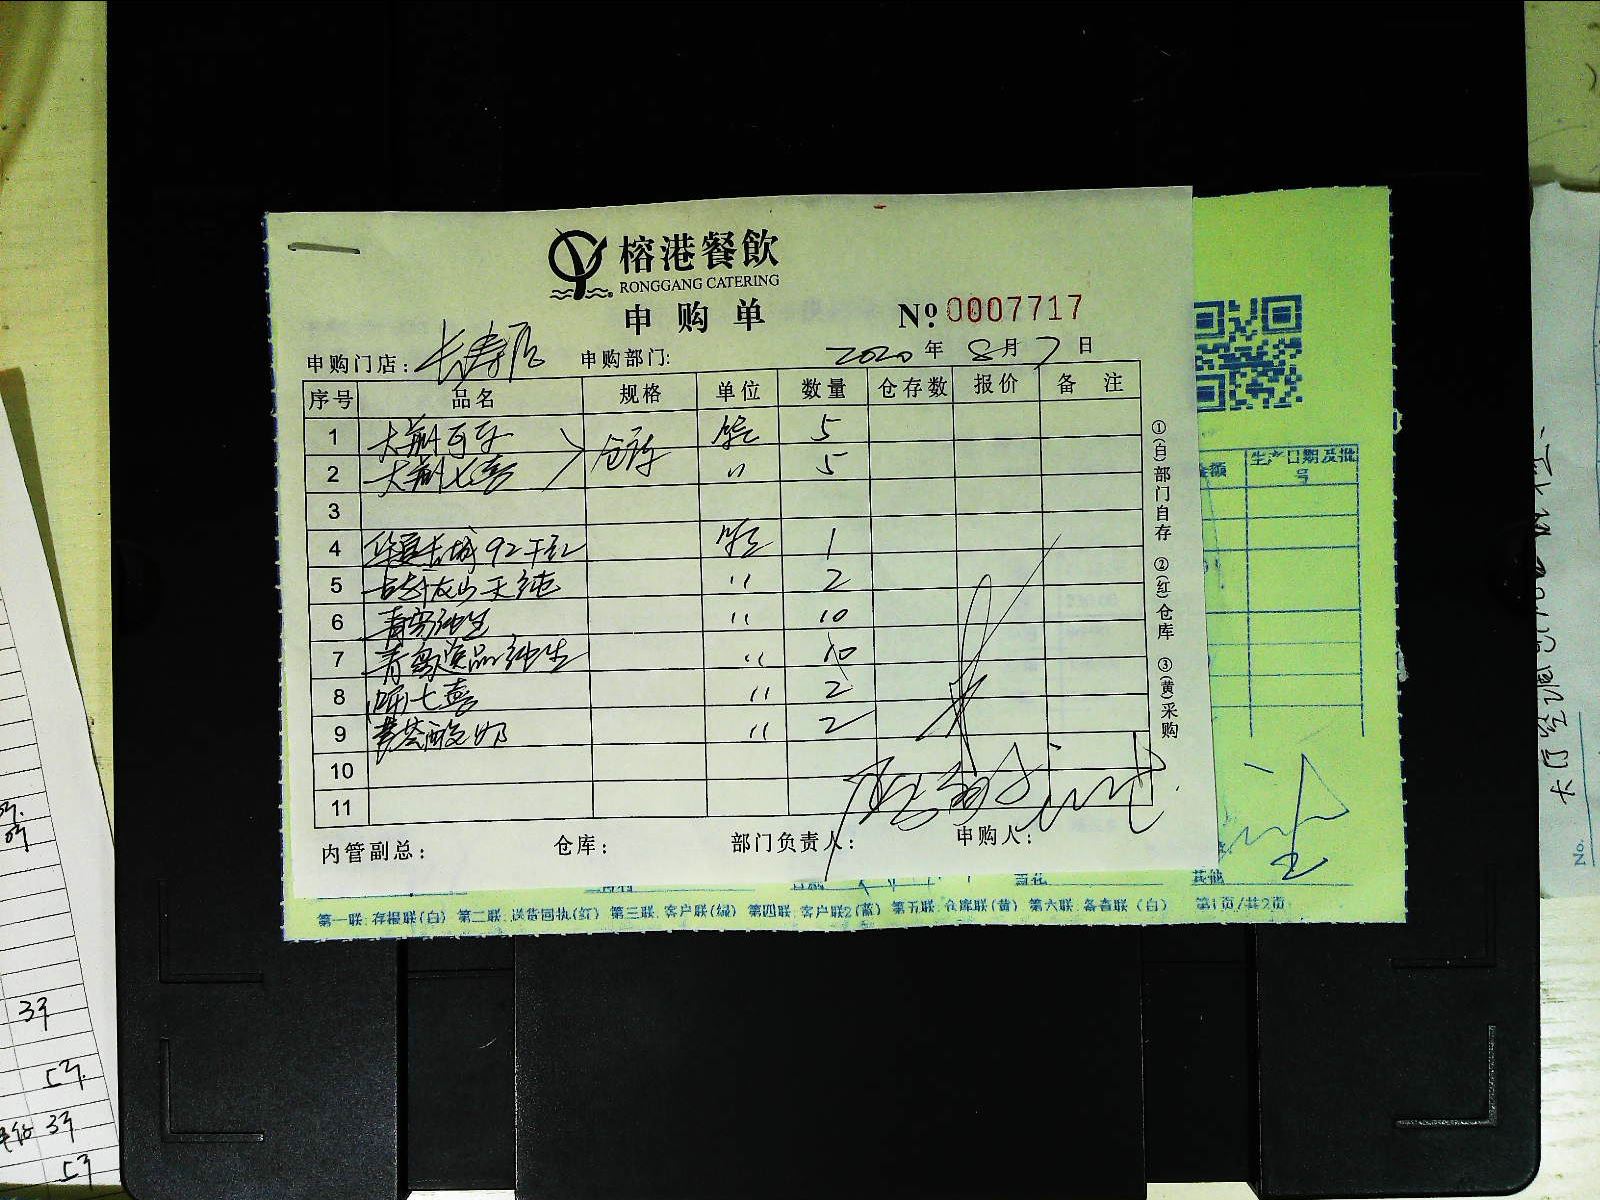 榕港餐飲
RONGGANG CATERING
申购单
№ 0007717
申购门店: 长寿店 申购部门: 2020 年 8 月 7 日
序号 品名 规格 单位 数量 仓存数 报价 备注
1 大瓶可乐 仓存 箱 5
2 大瓶七喜 〃 5
3
4 华夏长城92干红 箱 1
5 〃 2
6 青岛纯生 〃 10
7 青岛逸品纯生 〃 10
8 听七喜 〃 2
9 酸奶 〃 2
10
11
内管副总: 仓库: 部门负责人: 申购人:
①(白)部门自存 ②(红)仓库 ③(黄)采购
金额 生产日期及批号
其他
第一联:存根联(白) 第二联:送货回执(红) 第三联:客户联(绿) 第四联:客户联2(蓝) 第五联:仓库联(黄) 第六联:备查联(白) 第1页/共2页
No.